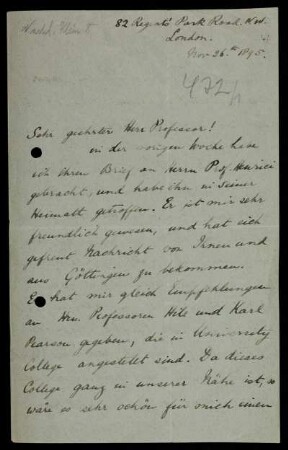 82 Regent's Park Road. N.W.
London.
Nov 26th 1895.
472/1
Sehr geehrter Herr Professor!
in der vorigen Woche habe
ich Ihren Brief an Herrn Prof. Henrici
gebracht, und habe ihn in seiner
Heimath getroffen. Er ist mir sehr
freundlich gewesen, und hat sich
gefreut Nachricht von Ihnen und
aus Göttingen zu bekommen.
Er hat mir gleich Empfehlungen
an Hrn. Professoren Hill und Karl
Pearson gegeben, die in University
College angestellt sind. Da dieses
College ganz in unserer Nähe ist, so
wäre es sehr schön für mich einen